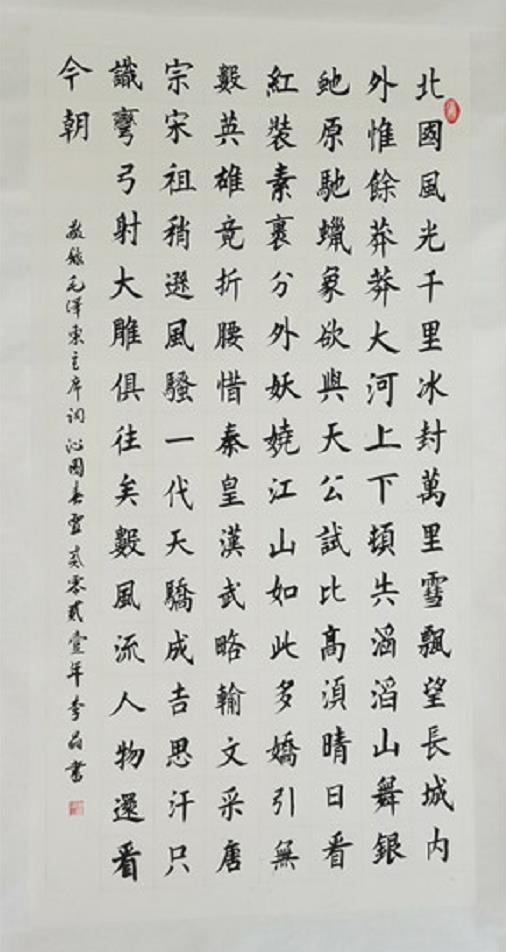 北國風光千里冰封萬里雪飄望長城内
外惟餘莽莽大河上下頓失滔滔山舞銀
虵原馳蠟象欲與天公試比高湏晴日看
紅裝素裹分外妖嬈江山如此多嬌引無
數英雄竟折腰惜秦皇漢武略輸文采唐
宗宋祖稍遜風騷一代天驕成吉思汗只
識彎弓射大雕俱往矣數風流人物還看
今朝
敬錄毛澤東主席詞沁園春雪貳零貳壹年李書